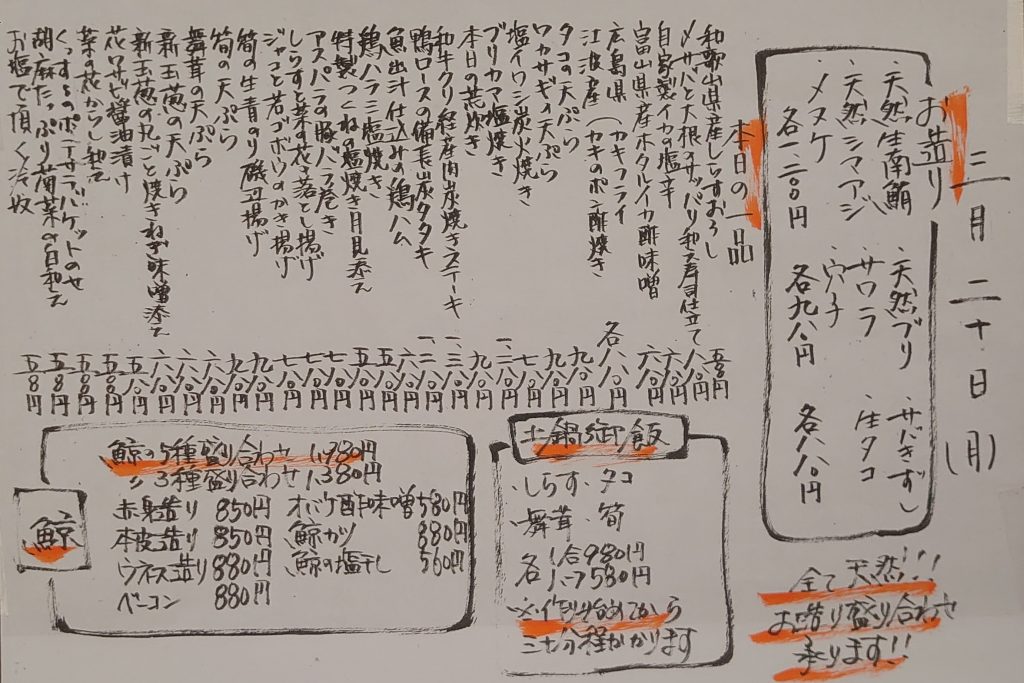 三月二十日(月)
お造り
・天然生南鮪
・天然シマアジ
・メヌケ
各一二〇〇円
・天然ブリ
・サワラ
・穴子
各九八〇円
・サバきずし
・生タコ
各八八〇円
全て天然!!!
お造り盛り合わせ
承ります!!
本日の一品
和歌山県産しらすおろし 五八〇円
〆サバと大根のサッパリ和え寿司仕立て 八八〇円
自家製イカの塩辛 六八〇円
富山県産ホタルイカ酢味噌 六八〇円
広島県 (カキフライ
江波産 (カキのポン酢焼き 各八八〇円
タコの天ぷら 九八〇円
ワカサギの天ぷら 九八〇円
塩イワシ炭火焼き 七八〇円
ブリカマ塩焼き
本日の荒炊き 九八〇円
和牛クリ 経産肉炭焼きステーキ
鴨ロースの備長炭タタキ
魚出汁仕込みの鶏ハム 六八〇円
鶏ハラミ塩焼き 五八〇円
特製つくねの塩焼き月見添え
アスパラの豚バラ巻き 七八〇円
しらすと菜の花の落とし揚げ
ジャコと若ゴボウのかき揚げ
筍の生青のり磯辺揚げ 九八〇円
筍の天ぷら 九八〇円
舞茸の天ぷら 六八〇円
新玉葱の天ぷら 六八〇円
新玉葱の丸ごと焼きねぎ味噌添え
花ワサビ醤油漬け 五八〇円
菜の花からし和え 五八〇円
くんすものポテサラバゲットのせ
胡麻たっぷり菊菜の白和え 五八〇円
お塩で頂く冷奴 五八〇円
土鍋御飯
・しらす ・タコ
・舞茸 ・筍
各1合980円
各ハーフ580円
※作り始めてから
三十分程かかります
鯨
鯨の5種盛り合わせ 1,980円
〃 3種盛り合わせ 1,380円
赤身造り 850円
本皮造り 850円
ウネス造り 880円
ベーコン 880円
オバケ酢味噌 580円
鯨カツ 880円
鯨の塩干し 560円